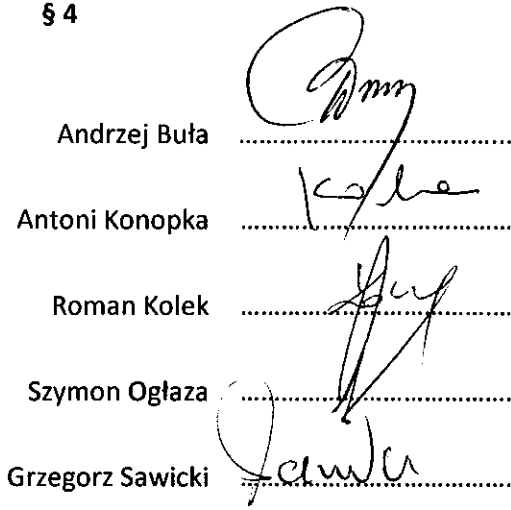 § 4
Andrzej Buła ........................................
Antoni Konopka ........................................
Roman Kolek ........................................
Szymon Ogłaza ........................................
Grzegorz Sawicki ........................................